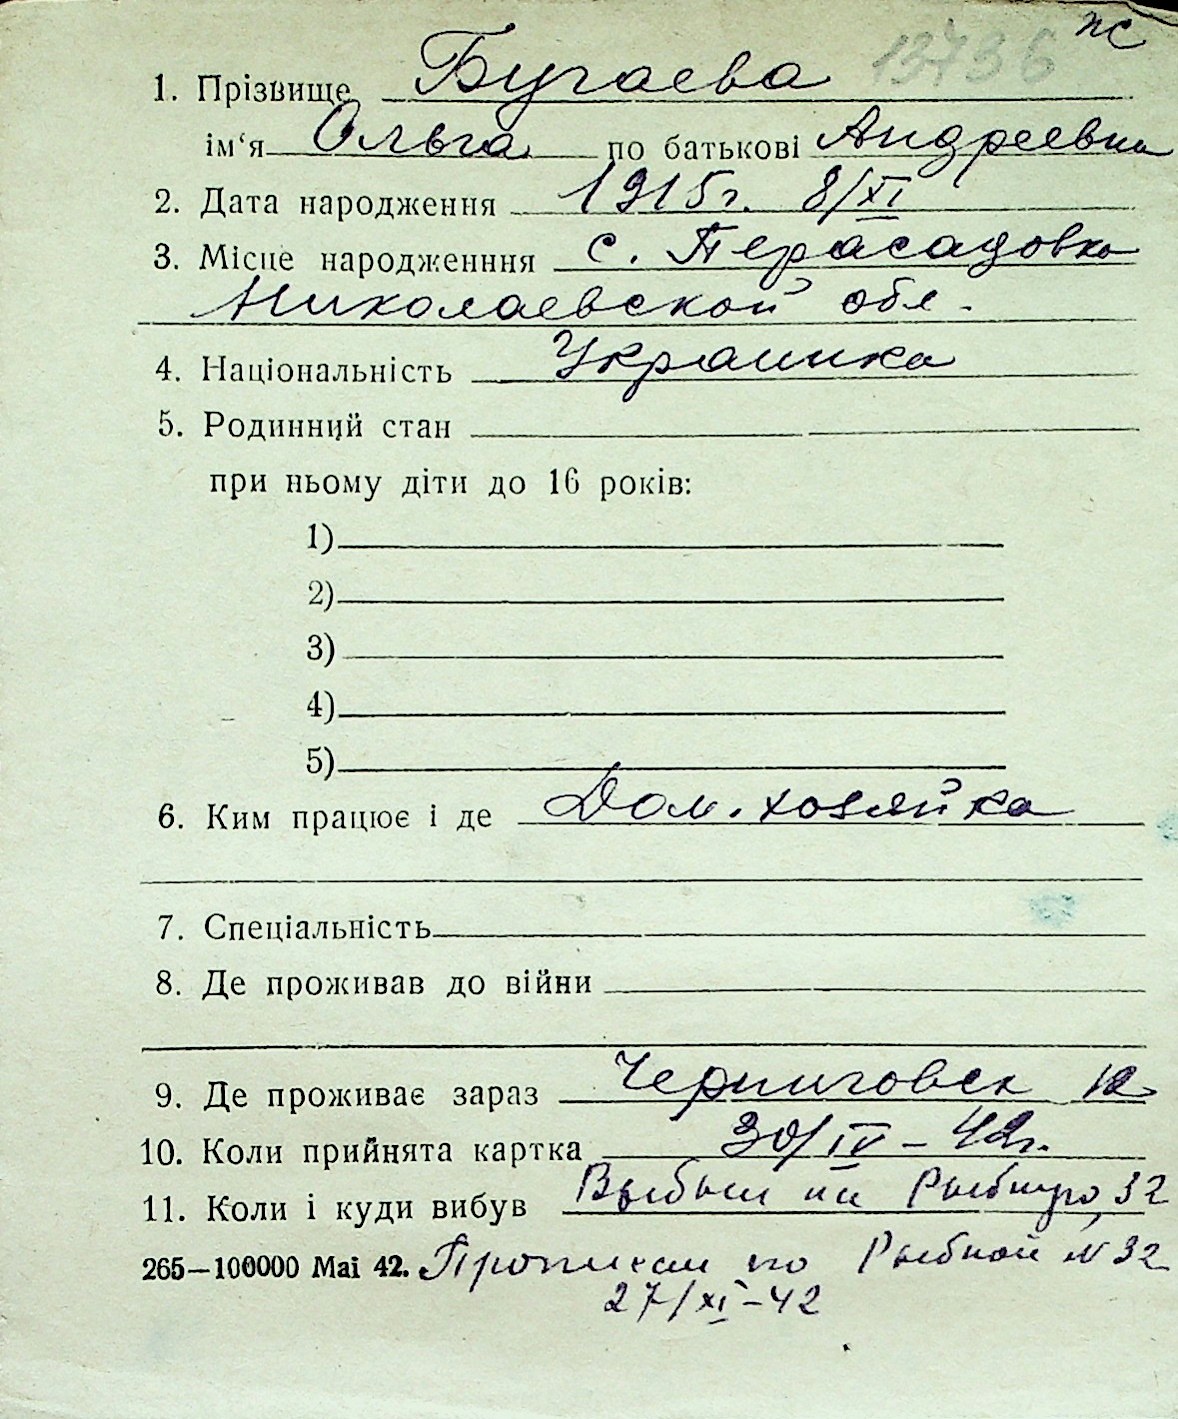 пс
13736
1. Прізвище Бугаева
ім'я Ольга по батькові Андреевна
2. Дата народження 1915г. 8/XI
3. Місце народженння с. Перасадовка
Николаевской обл.
4. Національність Украинка
5. Родинний стан
при ньому діти до 16 років:
1)
2)
3)
4)
5)
6. Ким працює і де Дом. хозяйка
7. Спеціальність
8. Де проживав до війни
9. Де проживає зараз Черниговск 12
10. Коли прийнята картка 30/IV-42г.
11. Коли і куди вибув Выбыл на Рыбную, 32
265—100000 Mai 42. Прописан по Рыбной №32
27/XI-42